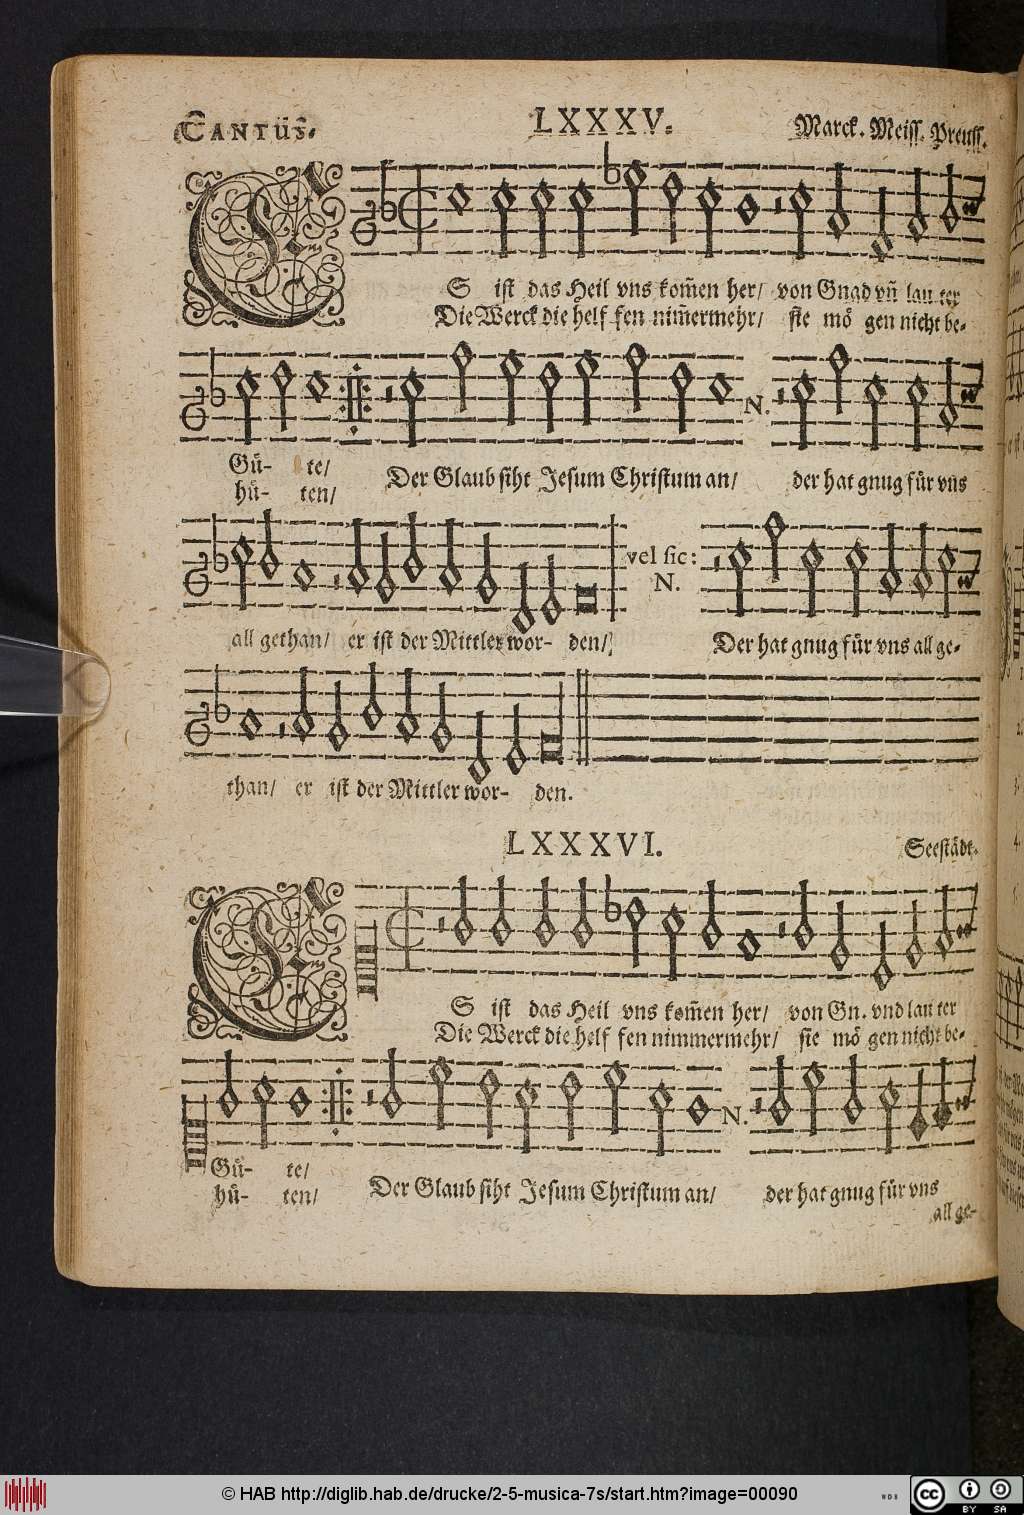 CANTUS.
LXXXV.
Marck. Meiss. Preuss.
ES ist das Heil vns kom̃en her/ von Gnad vñ lau ter
Die Werck die helf fen nim̃ermehr/ sie mö gen nicht be-
N.
Gü- te/
hü- ten/
Der Glaub siht Jesum Christum an/ der hat gnug für vns
vel sic:
N.
all gethan/ er ist der Mittler wor- den/
Der hat gnug für vns all ge-
than/ er ist der Mittler wor- den.
LXXXVI.
Seestädt.
ES ist das Heil vns kom̃en her/ von Gn. vnd lau ter
Die Werck die helf fen nimmermehr/ sie mö gen nicht be-
N.
Gü- te/
hü- ten/
Der Glaub siht Jesum Christum an/ der hat gnug für vns
all ge-
© HAB http://diglib.hab.de/drucke/2-5-musica-7s/start.htm?image=00090
WDB
CC BY SA